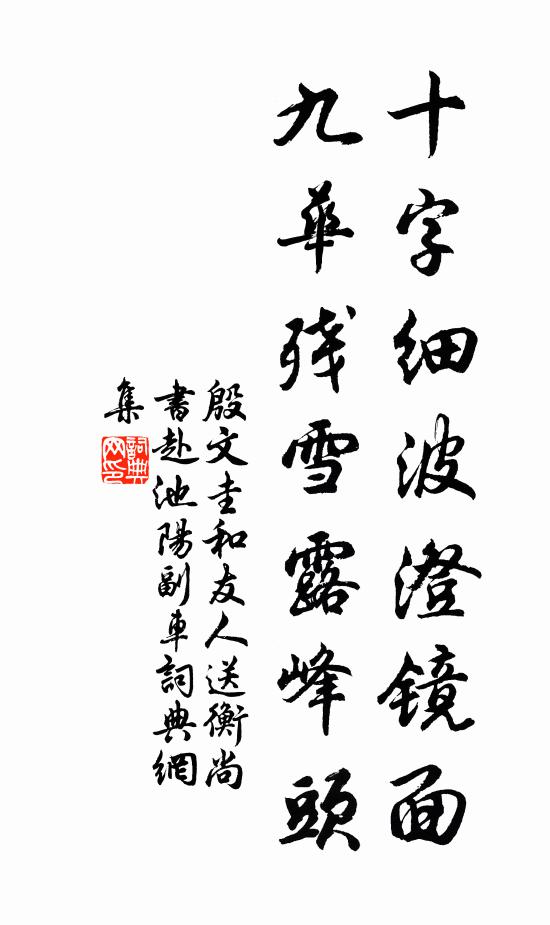 十字细波澄镜面
九華残雪露峰頭
殷文圭和友人送衡尚
書赴池陽副車詞典網
集
詞典
网印